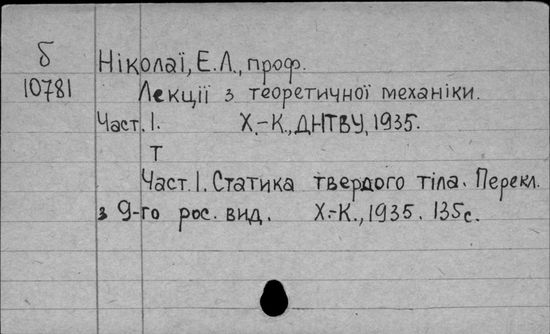 б
10781
Ніколаї, Е.Л., проф.
Лекції з теоретичної механіки.
Част. I. Х.-К., ДНТВУ, 1935.
Т
Част. I. Статика твердого тіла. Перекл.
з 9-го рос. вид. Х.-К., 1935. 135с.